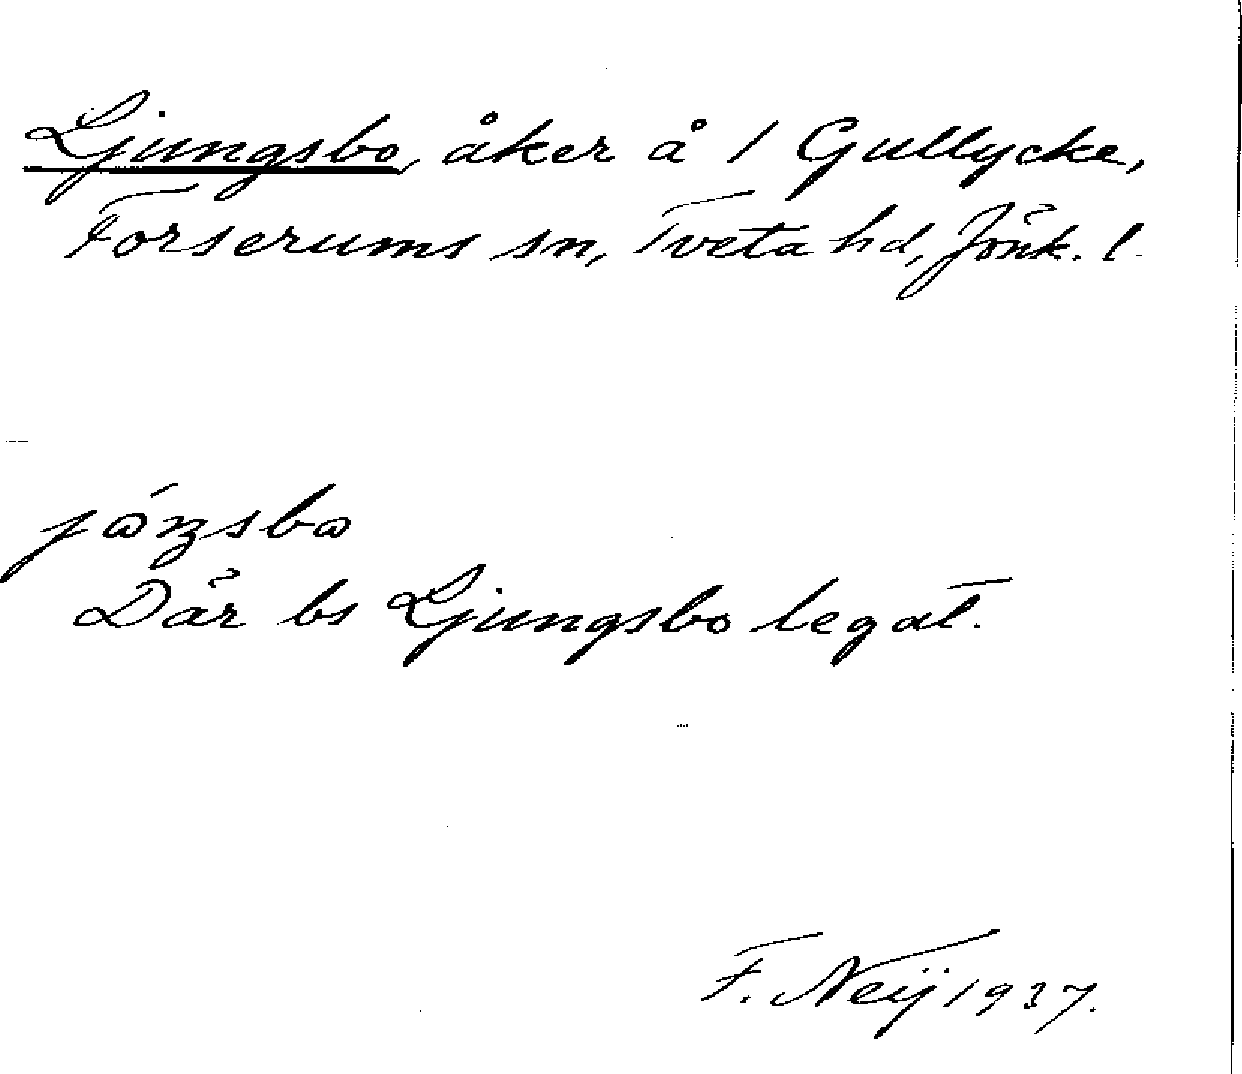 Ljungsbo, åker å 1 Gullycke,
Forserums sn, Tveta hd, Jönk. l.
Där bs Ljungsbo legat.
F. Neij 1937.